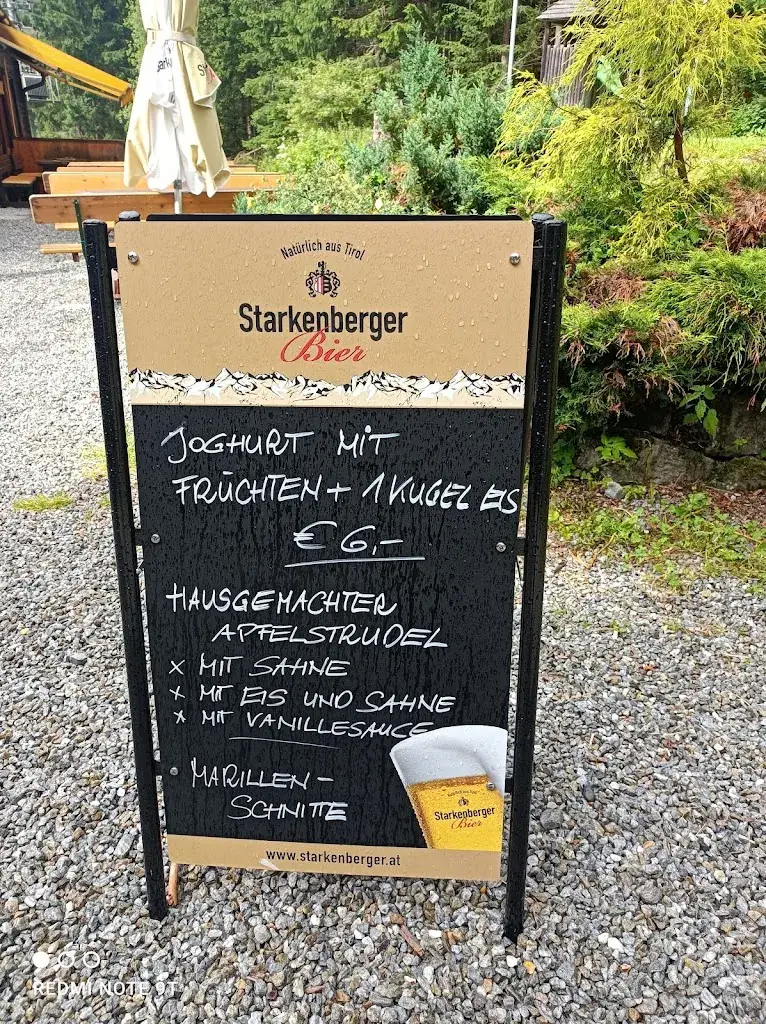 Natürlich aus Tirol
Starkenberger
Bier
JOGHURT MIT
FRÜCHTEN + 1 KUGEL EIS
€ 6,-
HAUSGEMACHTER
APFELSTRUDEL
x MIT SAHNE
x MIT EIS UND SAHNE
x MIT VANILLESAUCE
MARILLEN-
SCHNITTE
Natürlich aus Tirol
Starkenberger
Bier
www.starkenberger.at
REDMI NOTE 9T